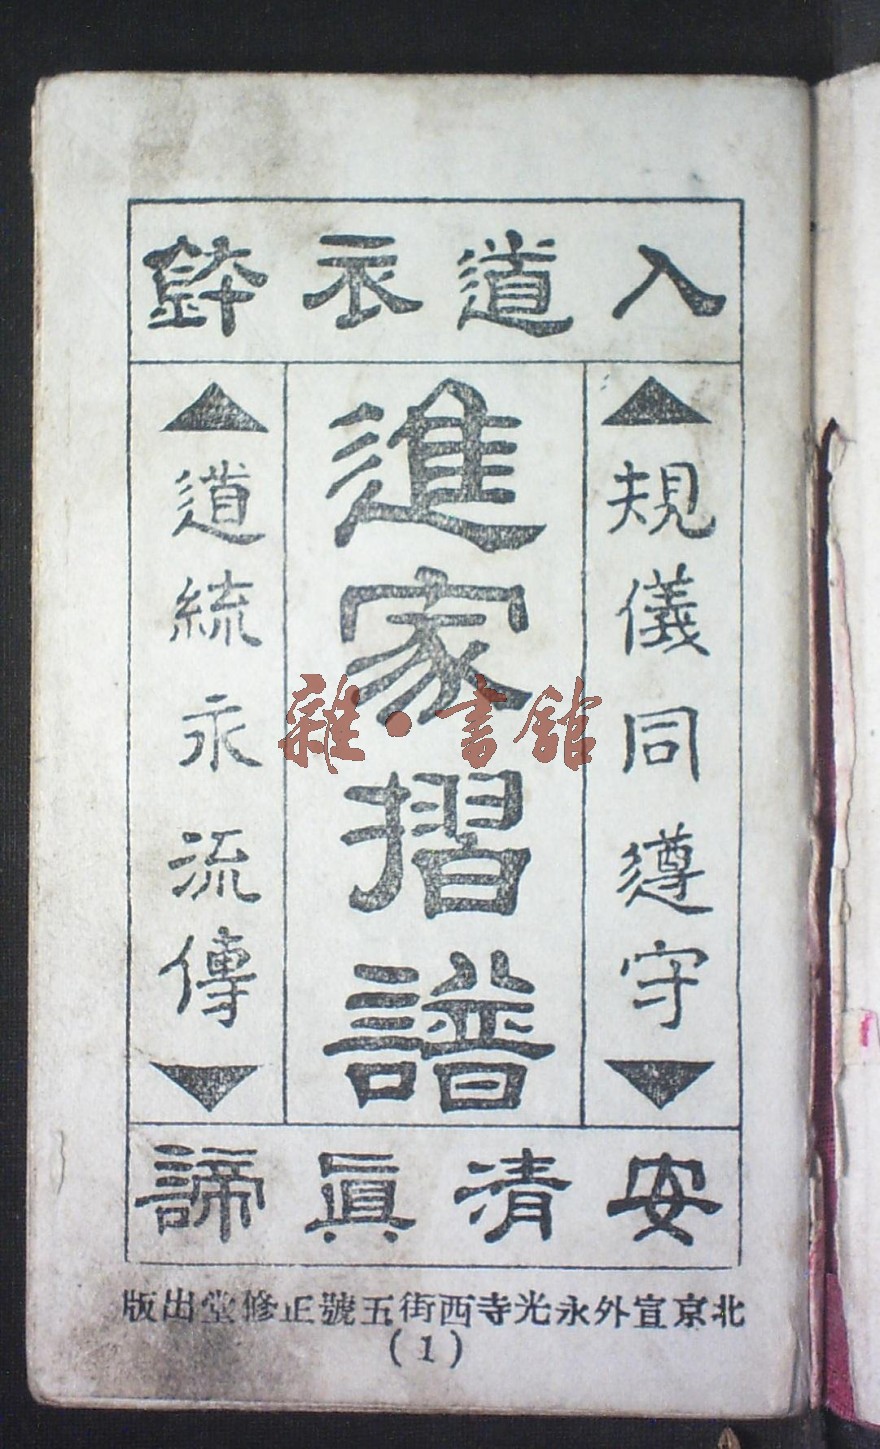 入道衣鉢
規儀同遵守
進家摺譜
道統永流傳
安清眞諦
北京宣外永光寺西街五號正修堂出版
(1)
雜·書館